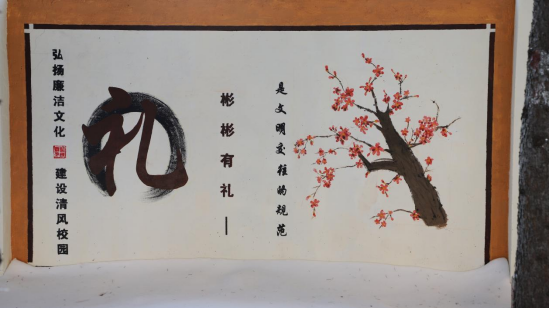 弘扬廉洁文化
建设清风校园
礼
彬彬有礼—
是文明交往的规范